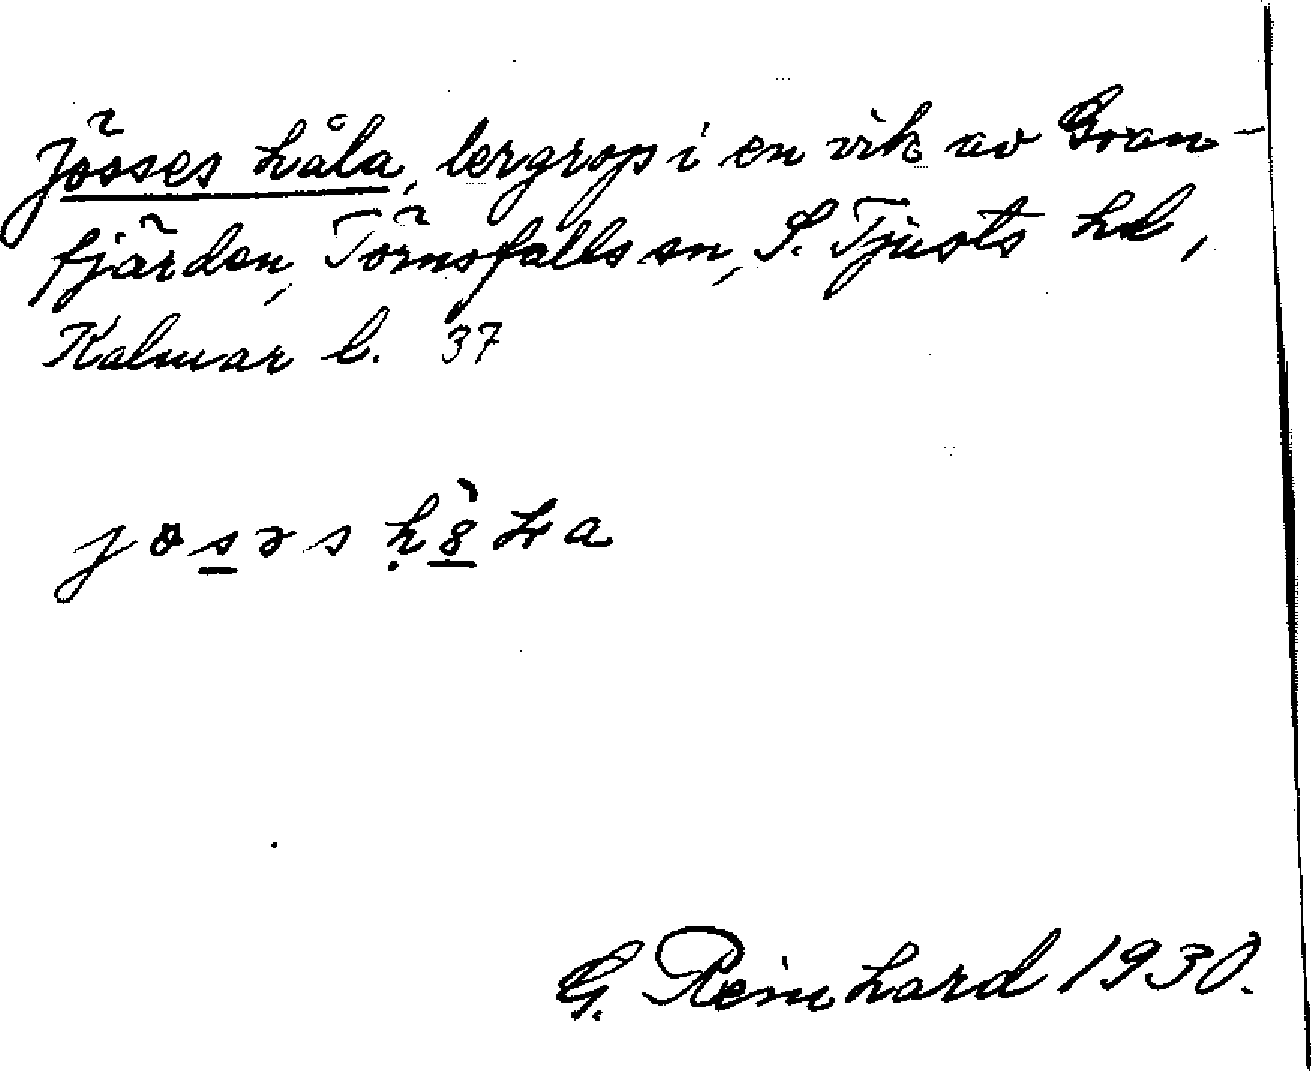 Jösses håla, lergrop i en vik av Gran-
fjärden, Törnsfalls sn, S. Tjusts hd,
Kalmar l. 37
G. Reinhard 1930.